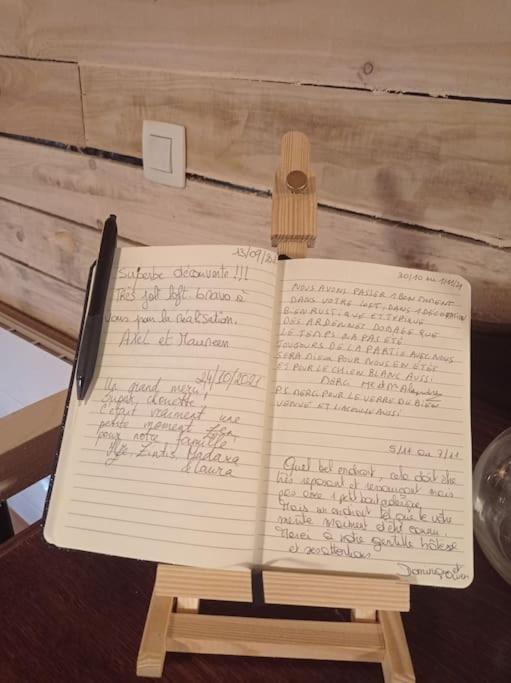 13/09/21
Superbe découverte !!!
Très joli loft. bravo à
vous pour la réalisation.
Axel et Maureen
24/10/2021
Un grand merci !
Super, chouette !
C'était vraiment une
petite moment
pour notre famille
Madara
& Laura
30/10 au 1/11/21
NOUS AVONS PASSER 1 BON MOMENT
DANS VOTRE LOFT, DANS 1 DÉCORATION
BIEN RUSTIQUE ET TYPIQUE
DES ARDENNES DOMAGE QUE
LE TEMPS N'A PAS ÉTÉ
TOUJOURS DE LA PARTIE AVEC NOUS
SERA MIEUX POUR NOUS EN ÉTÉ
ET POUR LE CHIEN BLANC AUSSI
MERCI
PS MERCI POUR LE VERRE DE BIEN
VENUE ET L'ACCUEIL AUSSI
5/11 au 7/11
Quel bel endroit, cela doit être
très reposant et ressourçant mais
pas avec 1 petit bout
Mais un endroit tel que le vôtre
mérite vraiment d'être connu.
Merci à notre gentille hôtesse
et ses attentions
Dominique et